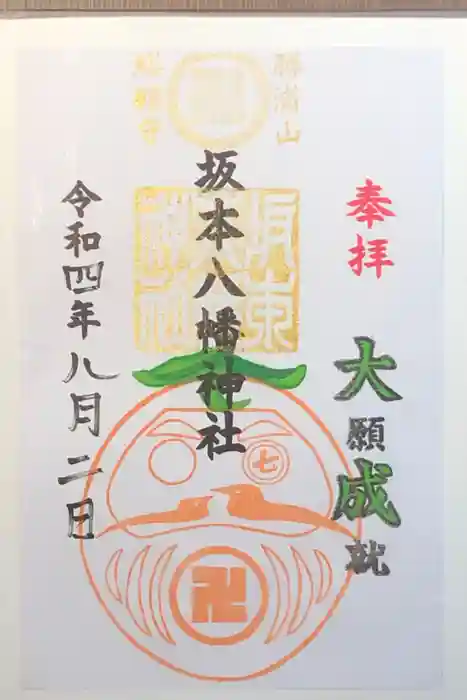 奉拝
大願成就
勝満山
坂本八幡神社
令和四年八月二日
七
卍